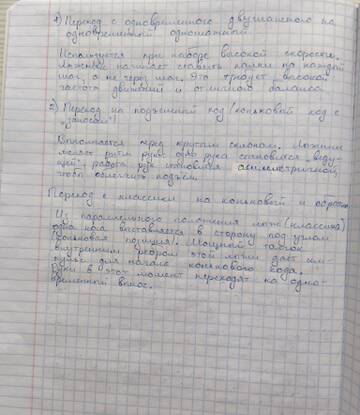 1) Переход с одновременного двухшажного на
одновременный одношажный
Используется при наборе высокой скорости.
Лыжник начинает ставить палки на каждый
шаг, а не через шаг. Это требует высокой
частоты движений и отличного баланса.
2) Переход на подъемный ход (коньковый ход с
"заносом")
Выполняется перед крутым склоном. Лыжник
меняет ритм рук: одна рука становится "веду-
щей" работа рук становится асимметричной,
чтоб облегчить подъем
Переход с классики на коньковый и обратно
Из параллельного положения лыж (классика)
одна нога выставляется в сторону под углом
(коньковая позиция). Мощный толчок
внутренним ребром этой лыжи дает им-
пульс для начала конькового хода.
Руки в этот момент переходят на одно-
временный вынос.